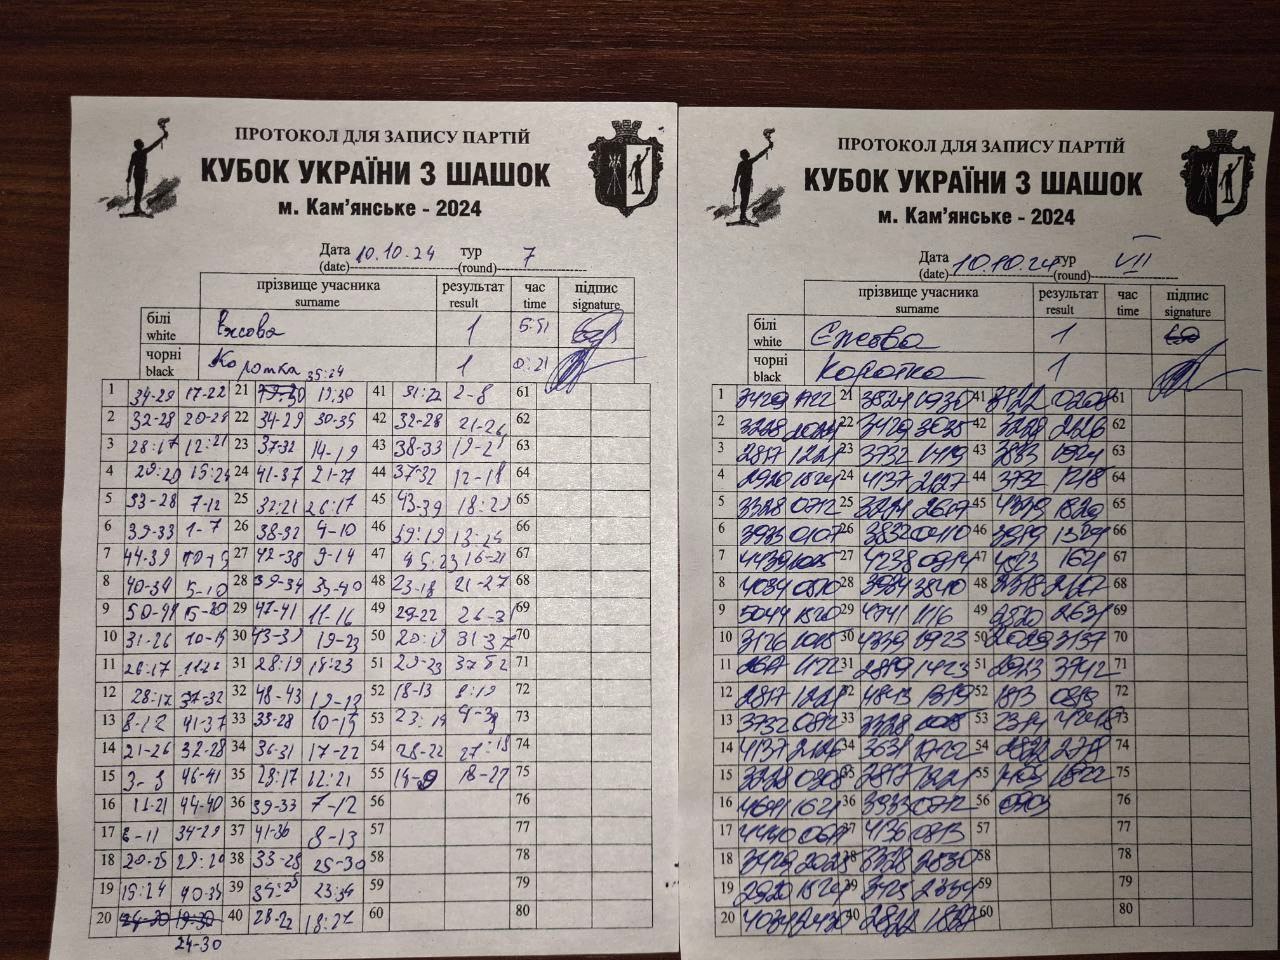 ПРОТОКОЛ ДЛЯ ЗАПИСУ ПАРТІЙ
КУБОК УКРАЇНИ З ШАШОК
м. Кам'янське - 2024
Дата 10.10.24 тур 7
(date) (round)
прізвище учасника результат час підпис
surname result time signature
білі 1 5:51
white
чорні Коротка 1 0:21
black
35:24
1 34-29 17-22 21 19:30 41 31:22 2-8 61
2 32-28 20-24 22 34-29 30-35 42 32-28 21-26 62
3 28:17 12:21 23 37-32 14-19 43 38-33 19-24 63
4 29:20 15:24 24 41-37 21-27 44 37-32 12-18 64
5 33-28 7-12 25 32:21 26:17 45 43-39 18:29 65
6 39-33 1-7 26 38-32 4-10 46 39:19 13:24 66
7 44-39 10-15 27 42-38 9-14 47 45:23 16-21 67
8 40-34 5-10 28 39-34 35-40 48 23-18 21-27 68
9 50-44 15-20 29 47-41 11-16 49 29-22 26-31 69
10 31-26 10-15 30 43-39 19-23 50 20:9 31-37 70
11 26:17 11:22 31 28:19 14:23 51 29-23 37:42 71
12 28:17 37-32 32 48-43 52 18-13 8:19 72
13 8-12 41-37 33 33-28 10-15 53 23:14 73
14 21-26 32-28 34 36-31 17-22 54 28-22 27:18 74
15 3-8 46-41 35 28:17 12:21 55 14-9 18-27 75
16 44-40 36 39-33 7-12 56 76
17 6-11 34-29 37 41-36 8-13 57 77
18 20-25 29:20 38 33-28 25-30 58 78
19 15:24 40-34 39 34:25 23:34 59 79
20 40 28-22 18:27 60 80
24-30
ПРОТОКОЛ ДЛЯ ЗАПИСУ ПАРТІЙ
КУБОК УКРАЇНИ З ШАШОК
м. Кам'янське - 2024
Дата 10.10.24 тур VII
(date) (round)
прізвище учасника результат час підпис
surname result time signature
білі Єжова 1
white
чорні Коротка 1
black
1 3429 1722 21 3524 1930 41 3122 0208 61
2 3228 2024 22 3429 3035 42 3228 2126 62
3 2817 1221 23 3732 1419 43 3833 1924 63
4 2920 1524 24 4137 2127 44 3732 1218 64
5 3328 0712 25 3221 2617 45 4339 1829 65
6 3933 0107 26 3832 0410 46 3919 1324 66
7 4439 1015 27 4238 0914 47 4523 1621 67
8 4034 0510 28 3934 3540 48 2318 2127 68
9 5044 1520 29 4741 1116 49 2631 69
10 3126 1015 30 4339 1923 50 3137 70
11 2617 1122 31 2819 1423 51 2923 3742 71
12 2817 1221 32 4843 1319 52 1813 0819 72
13 3732 0812 33 3328 1015 53 2314 73
14 4137 2126 34 3631 1722 54 2822 2718 74
15 3228 0308 35 2817 1221 55 1409 1822 75
16 4641 1621 36 3933 0712 56 0903 76
17 4440 0611 37 4136 0813 57 77
18 3429 2025 38 3328 2530 58 78
19 2920 1524 39 3425 2334 59 79
20 4034 2430 40 2822 1827 60 80